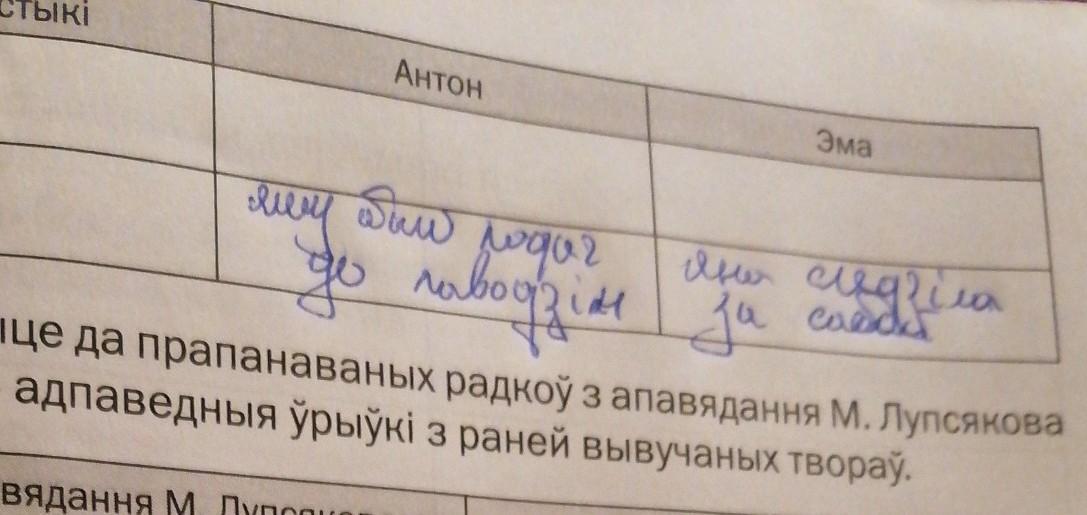 стыкі
Антон
Эма
яму быў
да паводзін
яна следзіла
за сабой
іце да прапанаваных радкоў з апавядання М. Лупсякова
адпаведныя ўрыўкі з раней вывучаных твораў.
вядання М. Лупсякова